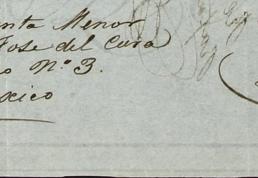 nta Menor
Jose del Cura
o Nº 3.
xico